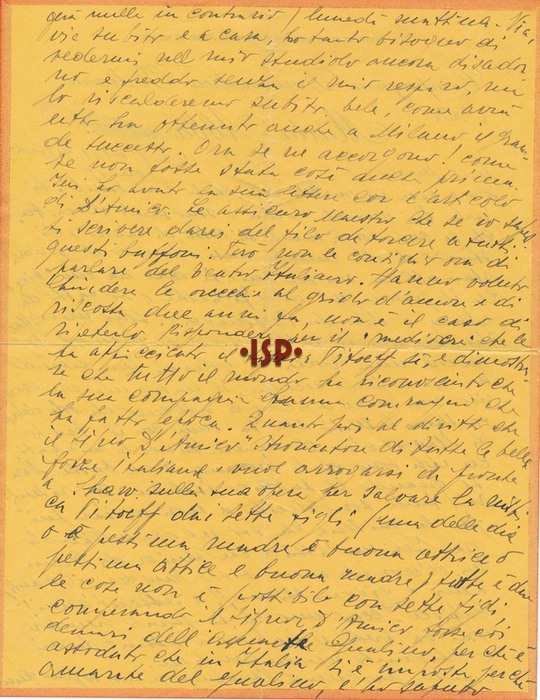 già nulle in contrario / lunedì mattina. Via,
via subito e a casa, ho tanto bisogno di
sedermi nel mio studiolo ancora disador
no e freddo senza il mio respiro, ma
lo riscalderemo subito bene, come avrà
ha ottenuto anche a Milano il gran
de successo. Ora se ne accorgono! come
se non fosse stata così anche prima.
Ieri ho avuto la sua lettera con l'articolo
di D'Amico. Le assicuro Maestro che se io sapes
si scrivere darei del filo da torcere a tutti
questi buffoni. Però non la consiglio ora di
parlare del Teatro Italiano. Hanno voluto
chiudere le orecchie al grido d'amore e di
riscossa due anni fa, non è il caso di
ripeterlo. Rispondere per il che le
ha affibbiato il Pitoeff sì, e dimostra
re che tutto il mondo ha riconosciuto che
la sua compagnia era una compagnia che
ha fatto epoca. Quanto poi al diritto che
il Signor D'Amico stroncatore di tutte le belle
forze italiane vuol arrogarsi di fronte
a Shaw sulla sua opera per salvare la
ca Pitoeff dai sette figli (una delle due
o è pessima madre e buona attrice o
pessima attrice e buona madre) tutte e due
le cose non è possibile con sette figli,
il Signor D'Amico
dell' Gualino, perchè è
assodato che in Italia si è imposta perchè
amante del Gualino, e ho saputo
•ISP•